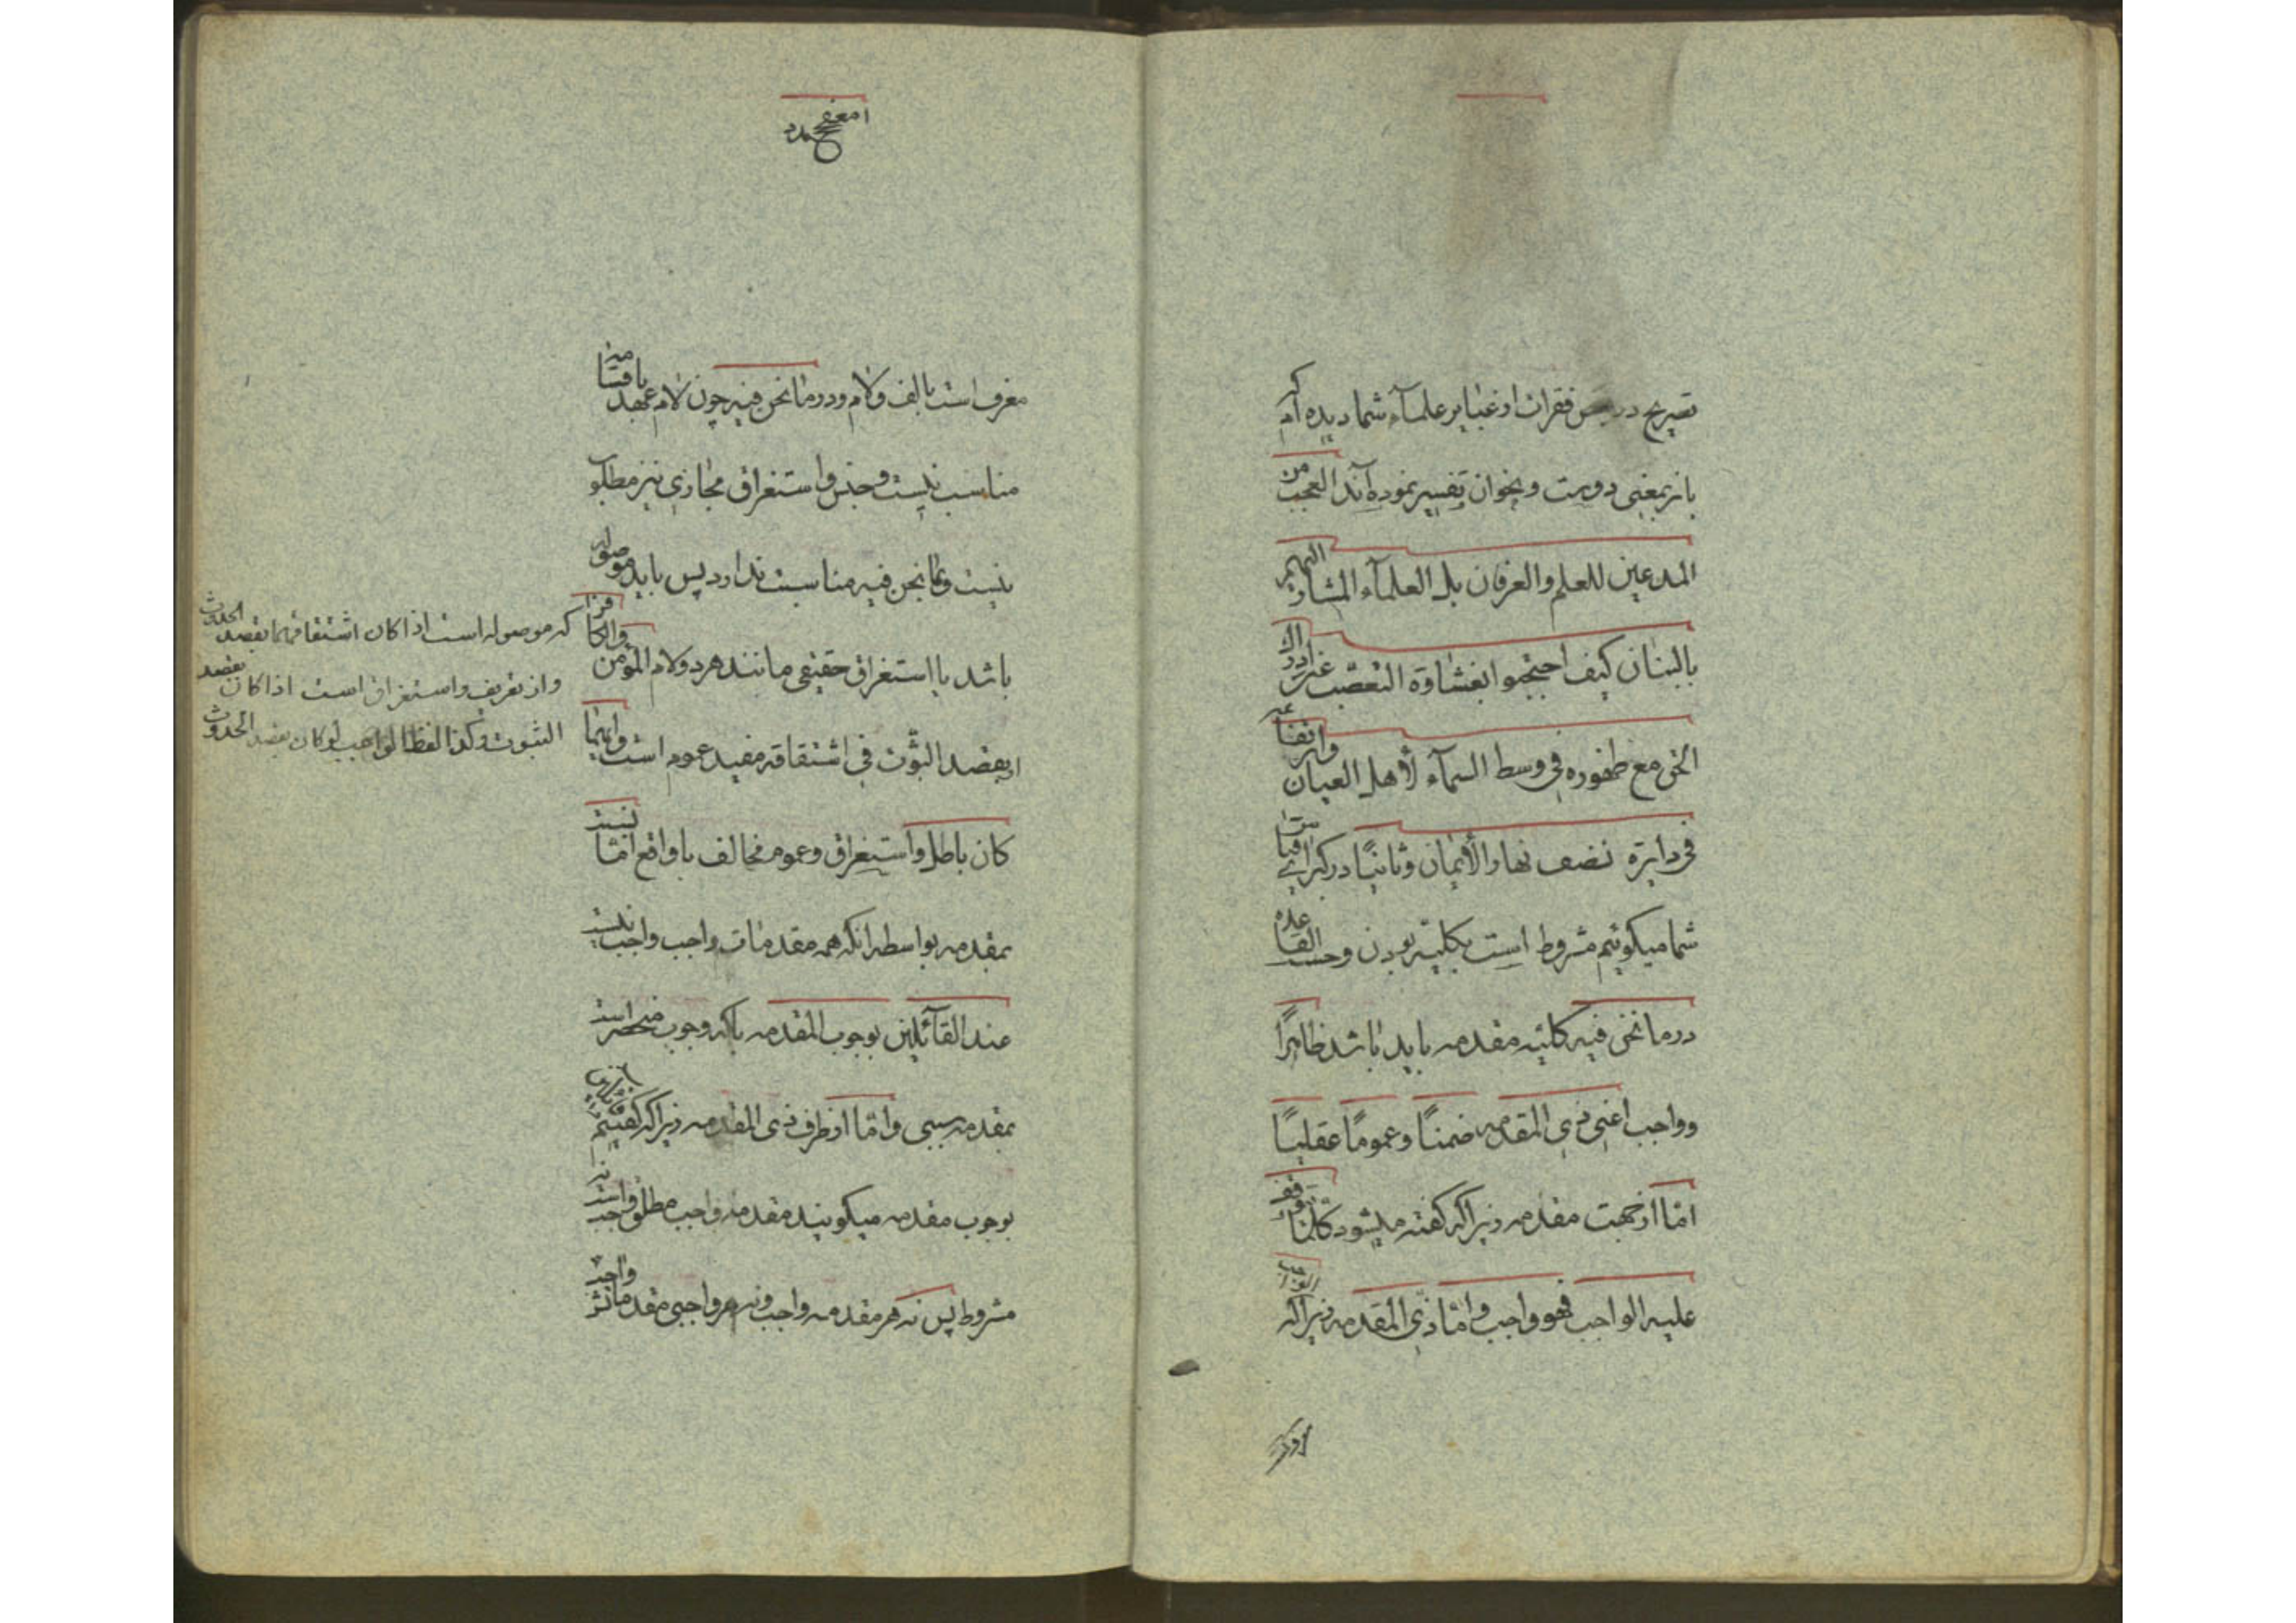 تصریح در فقرات او غنا بر علمآء شما دیده‌ام که
باز بمعنی دوست و بخوان تفسیر نموده‌آند العجب من
المدعین للعلم والعرفان بل العلمآء المشار الیهم
بالبنان کیف احتجبوا بغشاوة التعصّب عن ادراک
الحق مع ظهوره فی وسط السمآء لأهل العیان وارتفاعه
فی دایرة نصف نهار الأیمان وثانیًا در کبرای قیاس
شما میکوئیم مشروط است بکلیته بودن وحسب القاعده
در ما نحن فیه کلیته مقدمه باید باشد ظاهرًا
وواجب اعنی ذی المقدمه ضمنًا وعمومًا عقلیًا
امّا از جهت مقدمه زیراکه کفته میشود کلّما توقف
علیه الواجب فهو واجب وامّا ذی المقدمه زیراکه الواجب
معرف است بالف ولام ودر ما نحن فیه چون لام عهد با
مناسب نیست وجنس واستغراق مجازی نیز مطلوب
نیست وبما نحن فیه مناسبت ندارد پس باید موصوله
باشد یا استغراق حقیقی مانند هر دو لام المؤمن والکافر
ار بقصد الثّبوت فی اشتقاقه مفید عموم است وایهما
کان باطل واستغراق وعموم مخالف با واقع امّا نسبت
بمقدمه بواسطه آنکه همه مقدمات واجب واجب نیست
عند القآئلین بوجوب المقدمه بلکه وجوب منحصر است
بمقدمه سببی وامّا از طرف ذی المقدمه زیراکه
بوجوب مقدمه میکویند مقدمه واجب مطلق واجب است نه
مشروط پس نه هر مقدمه واجب ونه هر واجبی مقدماتش واجب
که موصوله است اذا کان اشتقاقهما بقصد الحدوث
واز تعریف واستغراق است اذا کان بقصد
الثبوت وکذا لفظ الواجب لو کان بقصد الحدوث